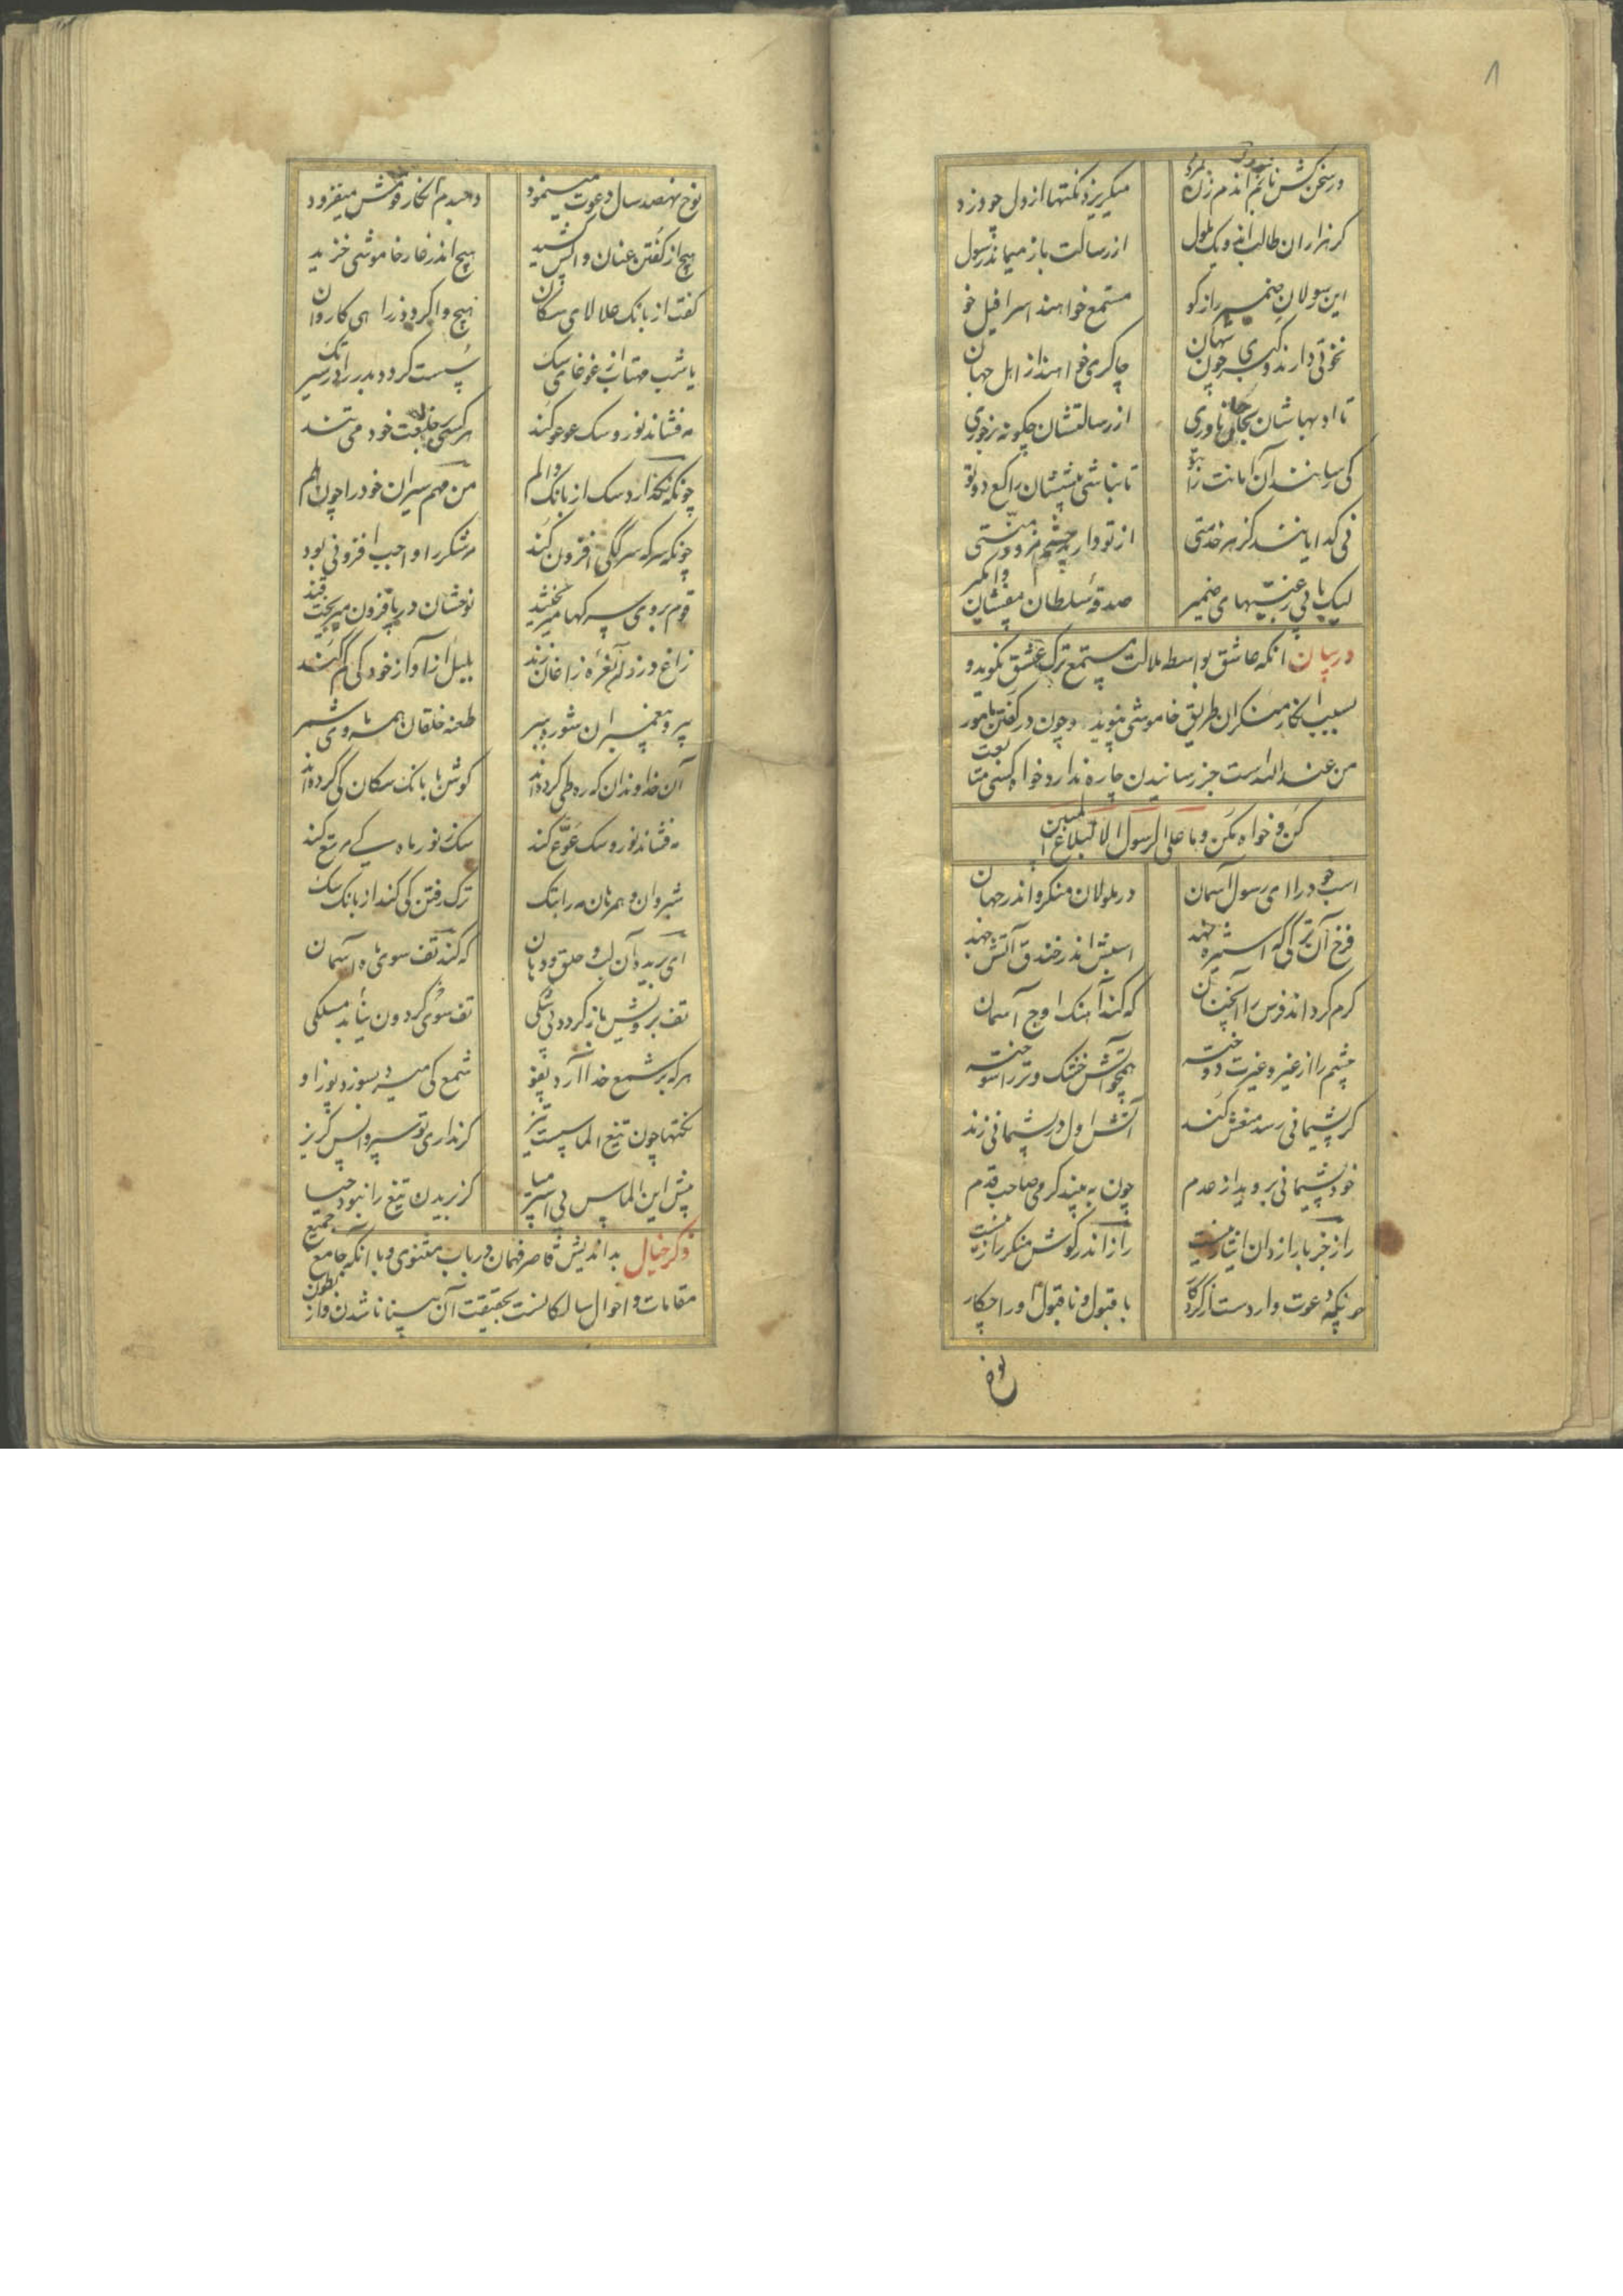 ۸
در سخن کش یابم آن دم زن بمزد
میگریزد نکتها از دل چو دزد
گر هزاران طالب‌اند و یک ملول
از رسالت باز میماند رسول
این رسولان ضمیر رازگو
مستمع خواهند اسرافیل خو
نخوتی دارند و کبری چون شهان
چاکری خواهند از اهل جهان
تا ادبهاشان بجا ناوری
از رسالتشان چگونه برخوری
کی رسانند آن امانت را بتو
تا نباشی پیششان راکع دوتو
نی گدایانند کز هر خدمتی
از تو دارند منتی
لیک با بی رغبتیهای ضمیر
صدقهٔ سلطان بیفشان وامگیر
در بیان آنکه عاشق بواسطه ملالت مستمع ترک عشق نگوید و
بسبب انکار منکران طریق خاموشی نپوید و چون در گفتن مامور
من عند الله است جز رسانیدن چاره ندارد خواه کسی متابعت
کن و خواه مکن وما علی الرسول الا البلاغ المبین
اسب خود را ای رسول آسمان
در ملولان منگر و اندر جهان
فرخ آن ترکی که استیزه نهد
اسبش اندر خندق آتش جهد
گرم گرداند فرس را آنچنان
که کند آهنگ اوج آسمان
چشم را از غیر و غیرت دوخته
همچو آتش خشک و تر را سوخته
گر پشیمانی رسد منعش کند
آتش اول در پشیمانی زند
خود پشیمانی بروید از عدم
چون ببیند گرمی صاحب قدم
راز جز با رازدان انباز نیست
راز اندر گوش منکر راز نیست
چونکه دعوت واردست از کردگار
با قبول و ناقبول او را چکار
نوح
نوح نهصد سال دعوت مینمود
دمبدم انکار قومش میفزود
هیچ از گفتن عنان واپس کشید
هیچ اندر غار خاموشی خزید
گفت از بانک و علالای سکان
هیچ واگردد ز راهی کاروان
یا شب مهتاب از غوغای سک
سست گردد بدر را در سیر تک
مه فشاند نور و سک عوعو کند
هر کسی بر خلقت خود می‌تند
چونکه نگذارد سک آن بانک الم
من مهم سیران خود را چون هلم
چونکه سرکه سرکگی افزون کند
مر شکر را واجب افزونی بود
قوم بروی سرکها میریختند
نوحشان دریا فزون میریخت قند
زاغ در رز نعره زاغان زند
بلبل از آواز خود کی کم کند
پیرو پیغمبران شو ره سپر
طعنه خلقان همه بادی شمر
آن خداوندان که ره طی کرده‌اند
گوش با بانک سکان کی کرده‌اند
مه فشاند نور و سک عوعو کند
سک ز نور ماه کی مرتع کند
شبروان و همرهان مه را بتک
ترک رفتن کی کنند از بانک سک
ای بریده آن لب و حلق و دهان
که کند تف سوی ماه آسمان
تف برویش باز گردد بی شکی
تف سوی گردون نیابد مسلکی
هر که بر شمع خدا آرد پفو
شمع کی میرد بسوزد پوز او
نکتها چون تیغ الماسست تیز
گر نداری تو سپر واپس گریز
پیش این الماس بی اسپر میا
کز بریدن تیغ را نبود حیا
ذکر خیال بداندیش قاصر فهمان در باب مثنوی و با آنکه جامع جمیع
مقامات و احوال سالکانست بحقیقت آن بینا ناشدن و از بطون